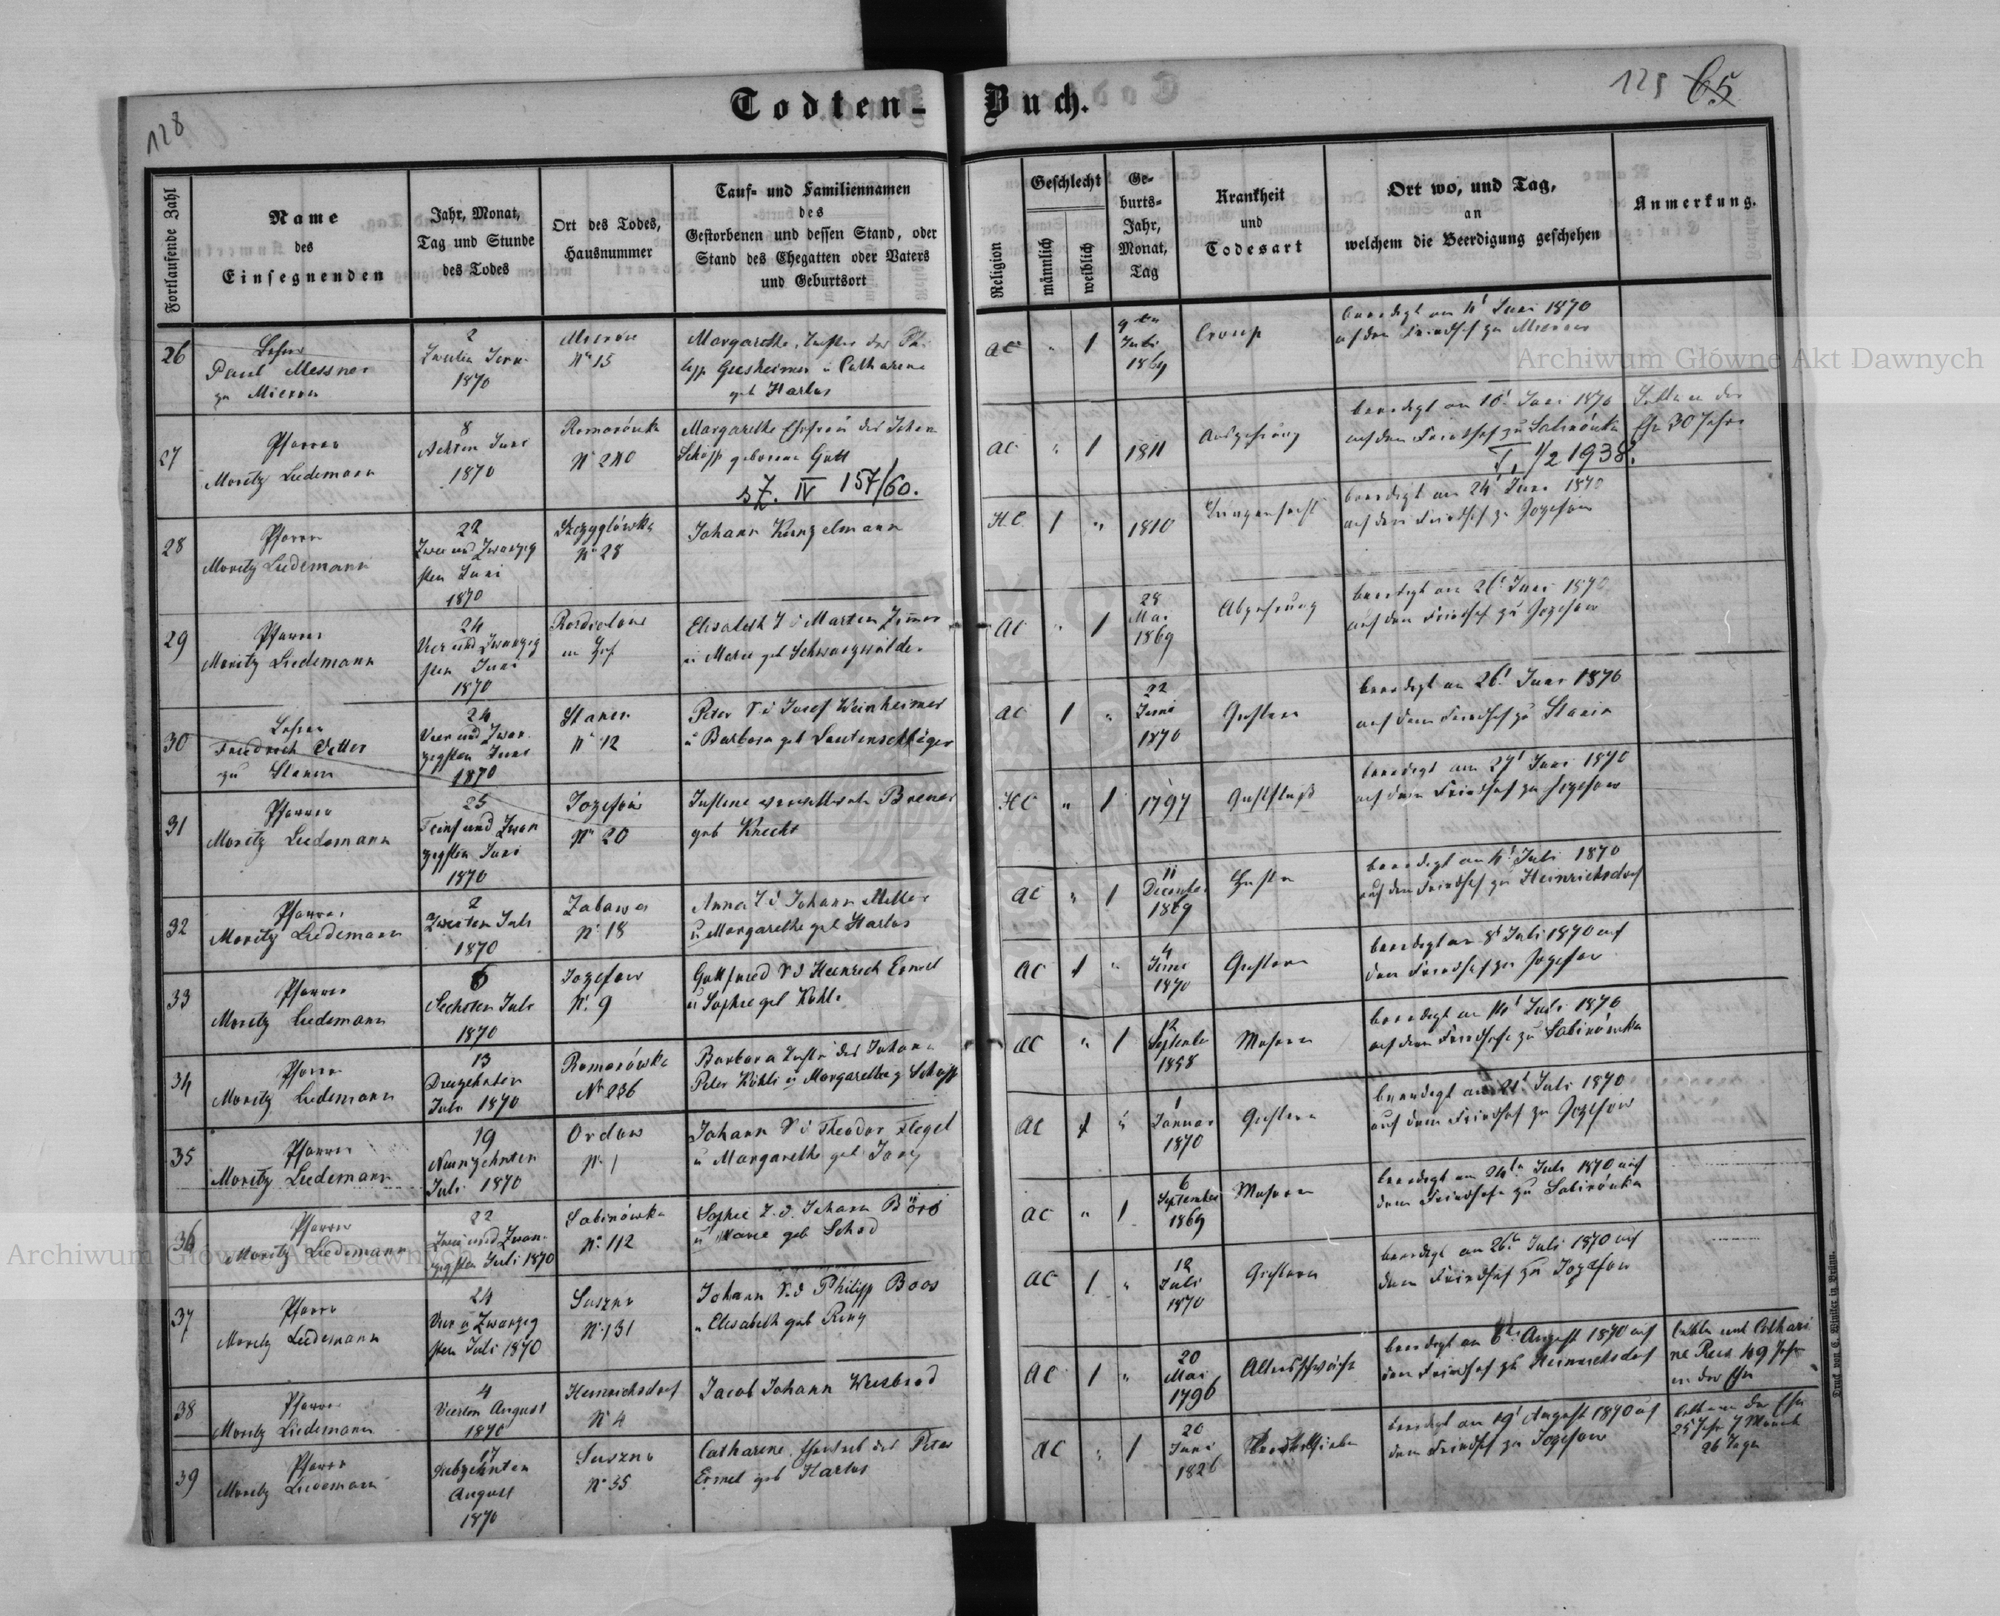 128
Todten-
Buch.
129 65
Fortlaufende Zahl
Name
des
Einsegnenden
Jahr, Monat,
Tag und Stunde
des Todes
Ort des Todes,
Hausnummer
Tauf- und Familiennamen
des
Gestorbenen und dessen Stand, oder
Stand des Ehegatten oder Vaters
und Geburtsort
Religion
Geschlecht
männlich
weiblich
Ge-
burts-
Jahr,
Monat,
Tag
Krankheit
und
Todesart
Ort wo, und Tag,
an
welchem die Beerdigung geschehen
Anmerkung.
26
Lehrer
Paul Messner
zu Mierow
2
Zweiten Juni
1870
Mierow
Nr 15
Margarethe, Tochter des Phi-
lipp Giesheimer u Catharine
geb Harlos
AC " 1
9ten
Juli
1869
Croup
beerdigt am 4t Juni 1870
auf dem Friedhof zu Mierow
27
Pfarrer
Moritz Liedemann
8
Achten Juni
1870
Romanówka
Nr 240
Margarethe Ehefrau des Johan
Schöpp geborene Gutt
sZ. IV 157/60.
AC " 1
1811
Auszehrung
beerdigt am 10t Juni 1870
auf dem Friedhof zu Sabinówka
T. 1/2 1938.
Lebte in der
Ehe 30 Jahre
28
Pfarrer
Moritz Liedemann
22
Zwei und Zwanzig
sten Juni
1870
Szczyglówka
Nr 28
Johann Kunzelmann
H.C. 1 "
1810
Lungensucht
beerdigt am 24t Juni 1870
auf dem Friedhof zu Jozefow
29
Pfarrer
Moritz Liedemann
24
Vier und Zwanzig
sten Juni
1870
im Hof
Elisabeth T d Martin Zimer
u Marie geb Schwarzwälder
AC " 1
28
Mai
1869
Abzehrung
beerdigt am 26t Juni 1870
auf dem Friedhof zu Jozefow
30
Lehrer
Friedrich Vetter
zu Stanin
24
Vier und Zwan-
zigsten Juni
1870
Stanin
Nr 12
Peter S d Josef Weinheimer
u Barbara geb Lautenschläger
AC 1 "
22
Juni
1870
Gichtern
beerdigt am 26t Juni 1870
auf dem Friedhof zu Stanin
31
Pfarrer
Moritz Liedemann
25
Fünf und Zwan
zigsten Juni
1870
Jozefow
Nr 20
Justine verwittwete Brener
geb Knecht
HC " 1
1797
beerdigt am 27t Juni 1870
auf dem Friedhof zu Jozefow
32
Pfarrer
Moritz Liedemann
2
Zweiten Juli
1870
Zabawa
Nr 18
Anna T d Johann Müller
u Margarethe geb Harlos
AC " 1
11
December
1869
Gichter
beerdigt am 4t Juli 1870
auf dem Friedhof zu Heinrichsdorf
33
Pfarrer
Moritz Liedemann
6
Sechsten Juli
1870
Jozefow
Nr. 9
Gottfried S d Heinrich Ermel
u Sophie geb Köhle
AC 1 "
4
Juni
1870
Gichtern
beerdigt am 8t Juli 1870 auf
dem Friedhof zu Jozefow
34
Pfarrer
Moritz Liedemann
13
Dreizehnten
Juli 1870
Romanówka
Nr 236
Barbara Tochter des Johann
Peter Köhle u Margarethe g Schöpp
AC " 1
12
September
1858
Masern
beerdigt am 14t Juli 1870
auf dem Friedhofe zu Sabinówka
35
Pfarrer
Moritz Liedemann
19
Neunzehnten
Juli 1870
Ordow
Nr. 1
Johann S d Theodor Flegel
u Margarethe geb Jary
AC 1 "
1
Januar
1870
Gichtern
beerdigt am 21t Juli 1870
auf dem Friedhof zu Jozefow
36
Pfarrer
Moritz Liedemann
22
Zwei und Zwan-
zigsten Juli 1870
Sabinówka
Nr. 112
Sophie T. d. Johann Börö
u Marie geb Schad
AC " 1
6
September
1869
Masern
beerdigt am 24ten Juli 1870 auf
dem Friedhofe zu Sabinówka
37
Pfarrer
Moritz Liedemann
24
Vier u Zwanzig
sten Juli 1870
Suszno
Nr. 131
Johann S. d Philipp Boos
u Elisabeth geb Ring
AC 1 "
12
Juli
1870
Gichtern
beerdigt am 26ten Juli 1870 auf
dem Friedhof zu Jozefow
38
Pfarrer
Moritz Liedemann
4
Vierten August
1870
Heinrichsdorf
Nr 4
Jacob Johann Weisbrod
AC 1 "
20
Mai
1796
Altersschwäche
beerdigt am 6ten August 1870 auf
dem Friedhof zu Heinrichsdorf
lebte mit Cathari
ne 49 Jahr
in der Ehe
39
Pfarrer
Moritz Liedemann
17
Siebzehnten
August
1870
Suszno
Nr 35
Catharine, Eheweib des Peter
Ermel geb Harlos
AC " 1
20
Juni
1826
beerdigt am 19t August 1870 auf
dem Friedhof zu Jozefow
lebte in der Ehe
25 Jahr 7 Monate
26 Tage
Druck von C. Winiker in Brünn.
Archiwum Główne Akt Dawnych
Archiwum Główne Akt Dawnych